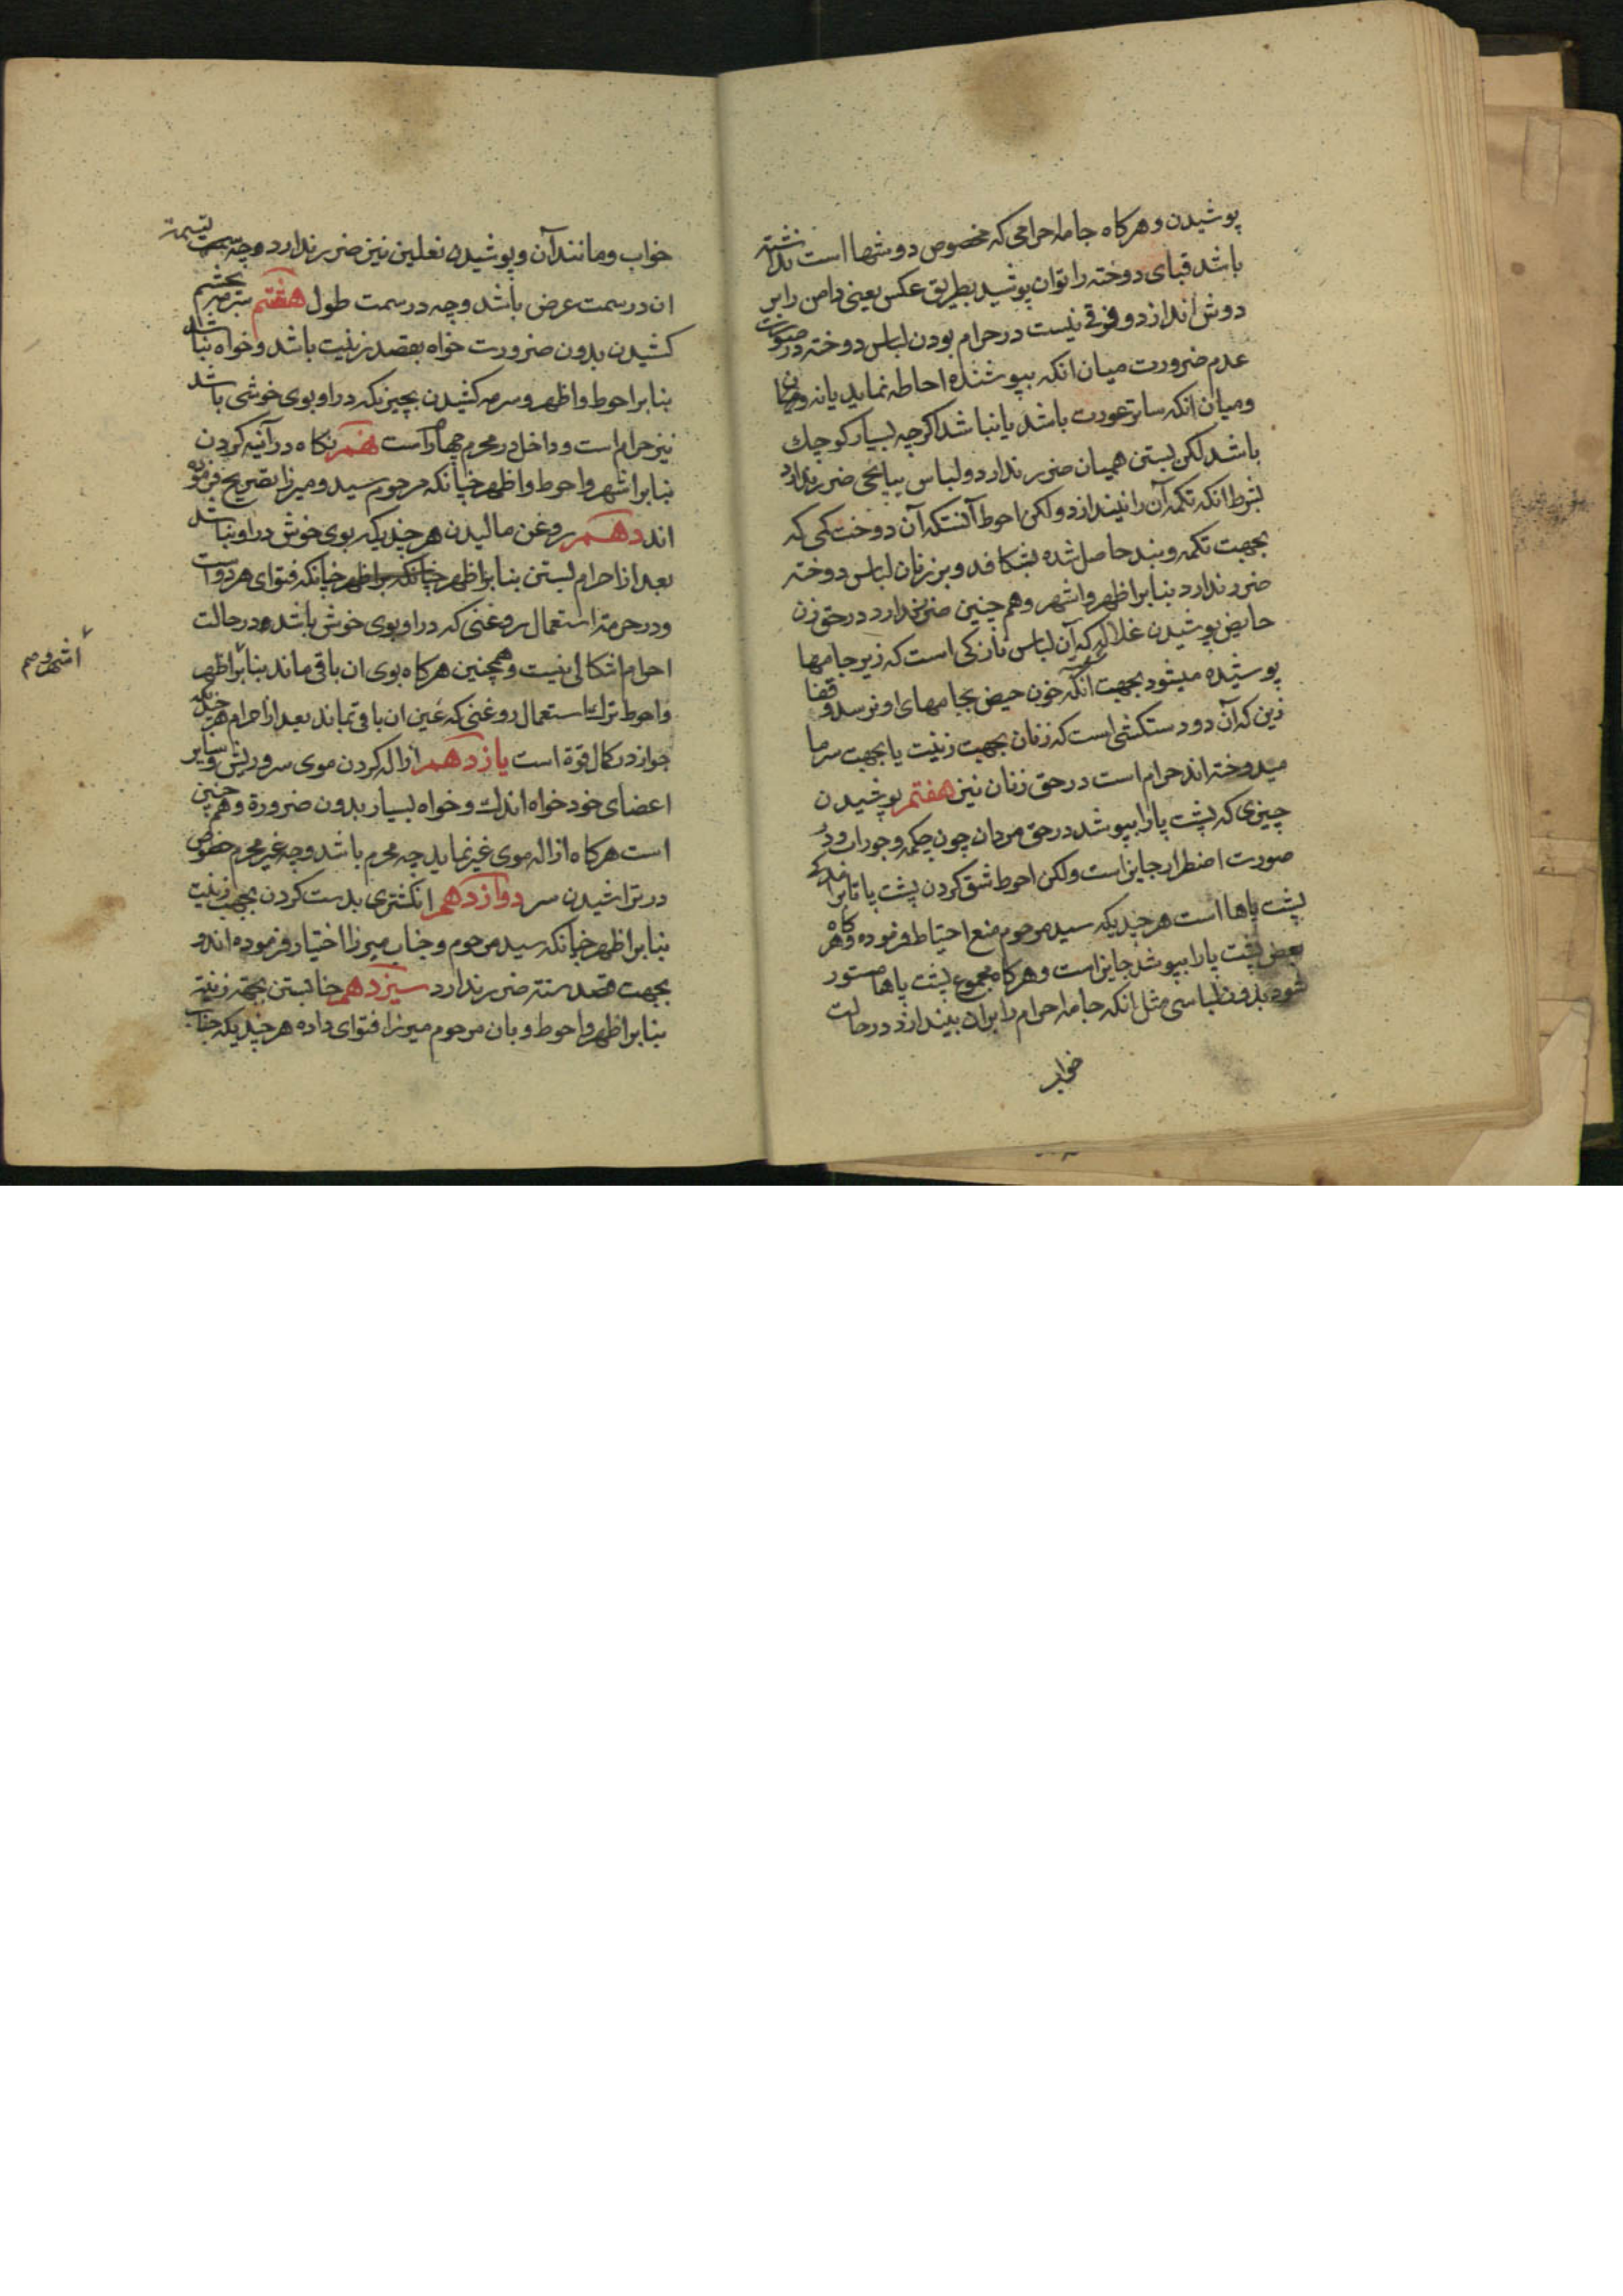 پوشیدن و هرکاه جامه احرامی که مخصوص دوشها است نداشته
باشد قبای دوخته را توان پوشید بطریق عکس یعنی دامن را بر
دوش اندازد و فرقی نیست در حرام بودن لباس دوخته در صورت
عدم ضرورت میان انکه بپوشنده احاطه نماید یا نه و میان
و میان انکه ساتر عورت باشد یا نباشد اکرچه بسیار کوچک
باشد لکن بستن همیان ضرر ندارد و لباس ضرر ندارد
بشرط انکه تکمه آن را نیندازد ولکن احوط آنستکه آن دوخت کمی که
بجهت تکمه و بند حاصل شده بشکافد و بر زنان لباس دوخته
ضرر ندارد بنابر اظهر و اشهر و هم چنین ضرر ندارد در حق زن
حایض پوشیدن غلاله که آن لباس نازکی است که زیر جامها
پوشیده میشود بجهت آنکه خون حیض بجامهای او نرسد و قفا
زین که آن دو دستکشی است که زنان بجهت زینت یا بجهت سرما
میدوخته اند حرام است در حق زنان نیز هفتم پوشیدن
چیزی که پشت پا را بپوشد در حق مردان چون چکمه و جوراب و در
صورت اضطرار جایز است ولکن احوط شق کردن پشت پا تا برآمدکی
پشت پاها است هرچندیکه سید مرحوم منع احتیاط فرموده و هرکاه
بعض پشت پا را بپوشد جایز است و هرکاه مجموع پشت پاها مستور
شود بدون لباسی مثل انکه جامه احرام را بران بیندازد در حالت
خواب
خواب و مانند آن و پوشیدن نعلین نیز ضرر ندارد و چه تسمه
ان در سمت عرض باشد و چه در سمت طول هشتم سرمه بچشم
کشیدن بدون ضرورت خواه بقصد زینت باشد و خواه نباشد
بنابر احوط و اظهر و سرمه کشیدن بچیزیکه در او بوی خوشی باشد
نیز حرام است و داخل در محرم چهارم است نهم نکاه در آئینه کردن
بنابر اشهر و احوط و اظهر چنانکه مرحوم سید و میرزا تصریح فرموده
اند دهم روغن مالیدن هر چندیکه بوی خوش در او نباشد
بعد از احرام بستن بنابر اظهر چنانکه بر اظهر چنانکه فتوای هر دو است
و در حرمة استعمال روغنی که در او بوی خوش باشد و در حالت
احرام اشکالی نیست و همچنین هرکاه بوی ان باقی ماند بنابر اظهر
اشهر و صم
و احوط ترک استعمال روغنی که عین ان باقی نماند بعد از احرام هر چندیکه
جواز در کمال قوة است یازدهم ازاله کردن موی سر و ریش و سایر
اعضای خود خواه اندک و خواه بسیار بدون ضرورة و هم چنین
است هرکاه ازاله موی غیر نماید چه محرم باشد و چه غیر محرم خصوص
در تراشیدن سر دوازدهم انکشتری بدست کردن بجهت زینت
بنابر اظهر چنانکه سید مرحوم و جناب میرزا اختیار فرموده اند و
بجهت قصد سنة ضرر ندارد سیزدهم حنا بستن بجهة زینة
بنابر اظهر و احوط و بان مرحوم میرزا فتوای داده هر چندیکه جناب